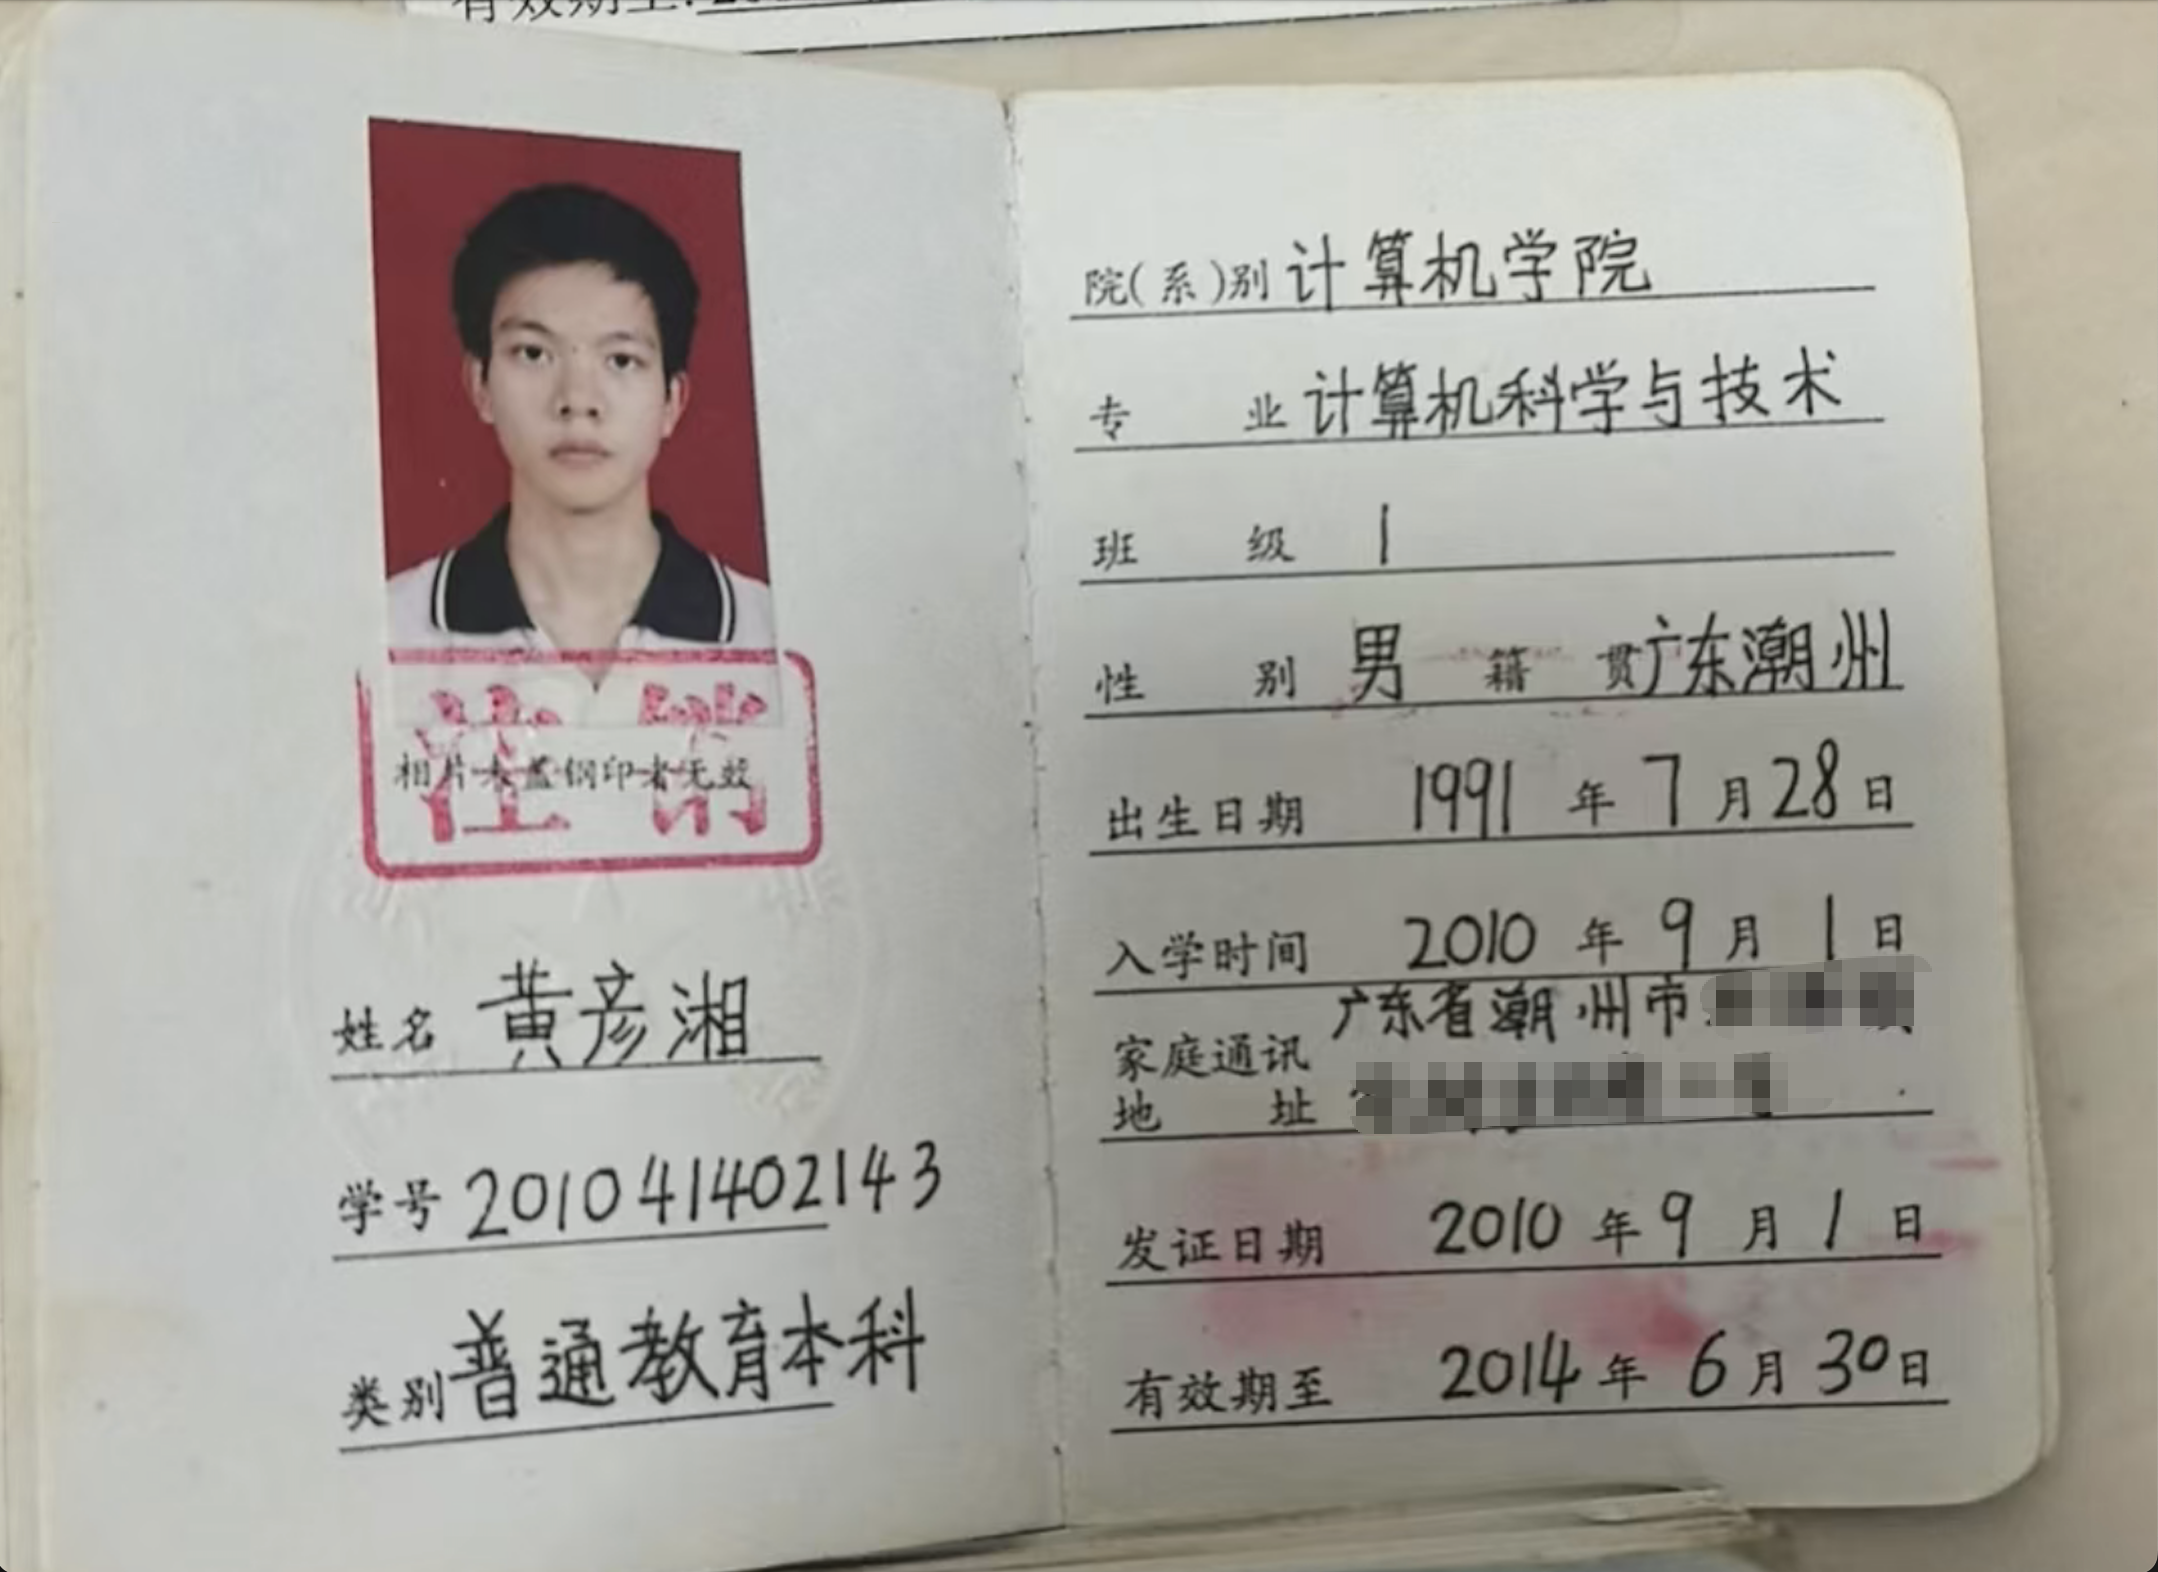 有效期至:
注销
相片未盖钢印者无效
姓名 黄彦湘
学号 201041402143
类别 普通教育本科
院(系)别 计算机学院
专业 计算机科学与技术
班级 1
性别 男 籍贯 广东潮州
出生日期 1991年7月28日
入学时间 2010年9月1日
家庭通讯 广东省潮州市
地址
发证日期 2010年9月1日
有效期至 2014年6月30日